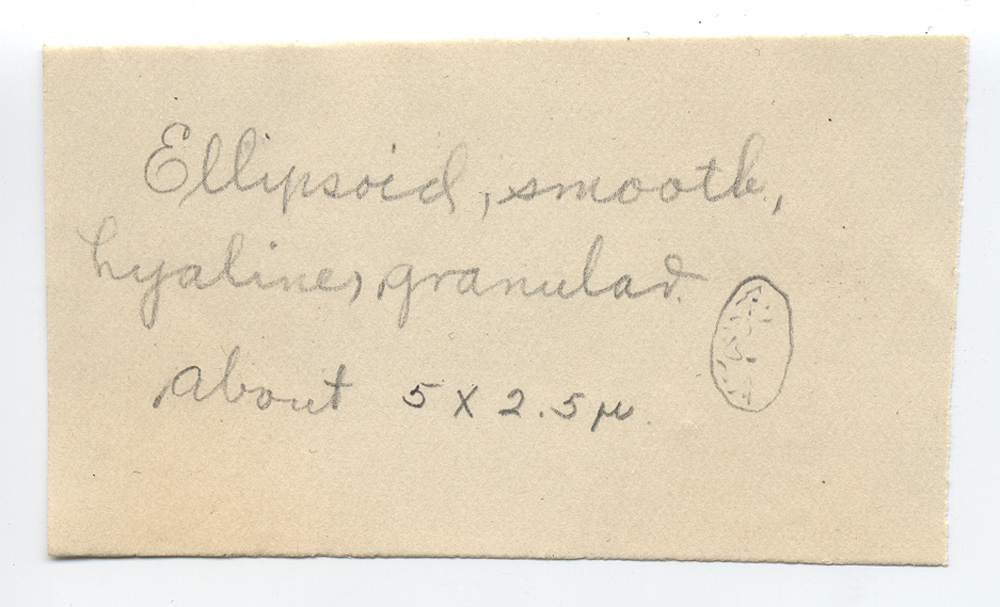 Ellipsoid, smooth,
hyaline, granular.
about 5 X 2.5 µ.